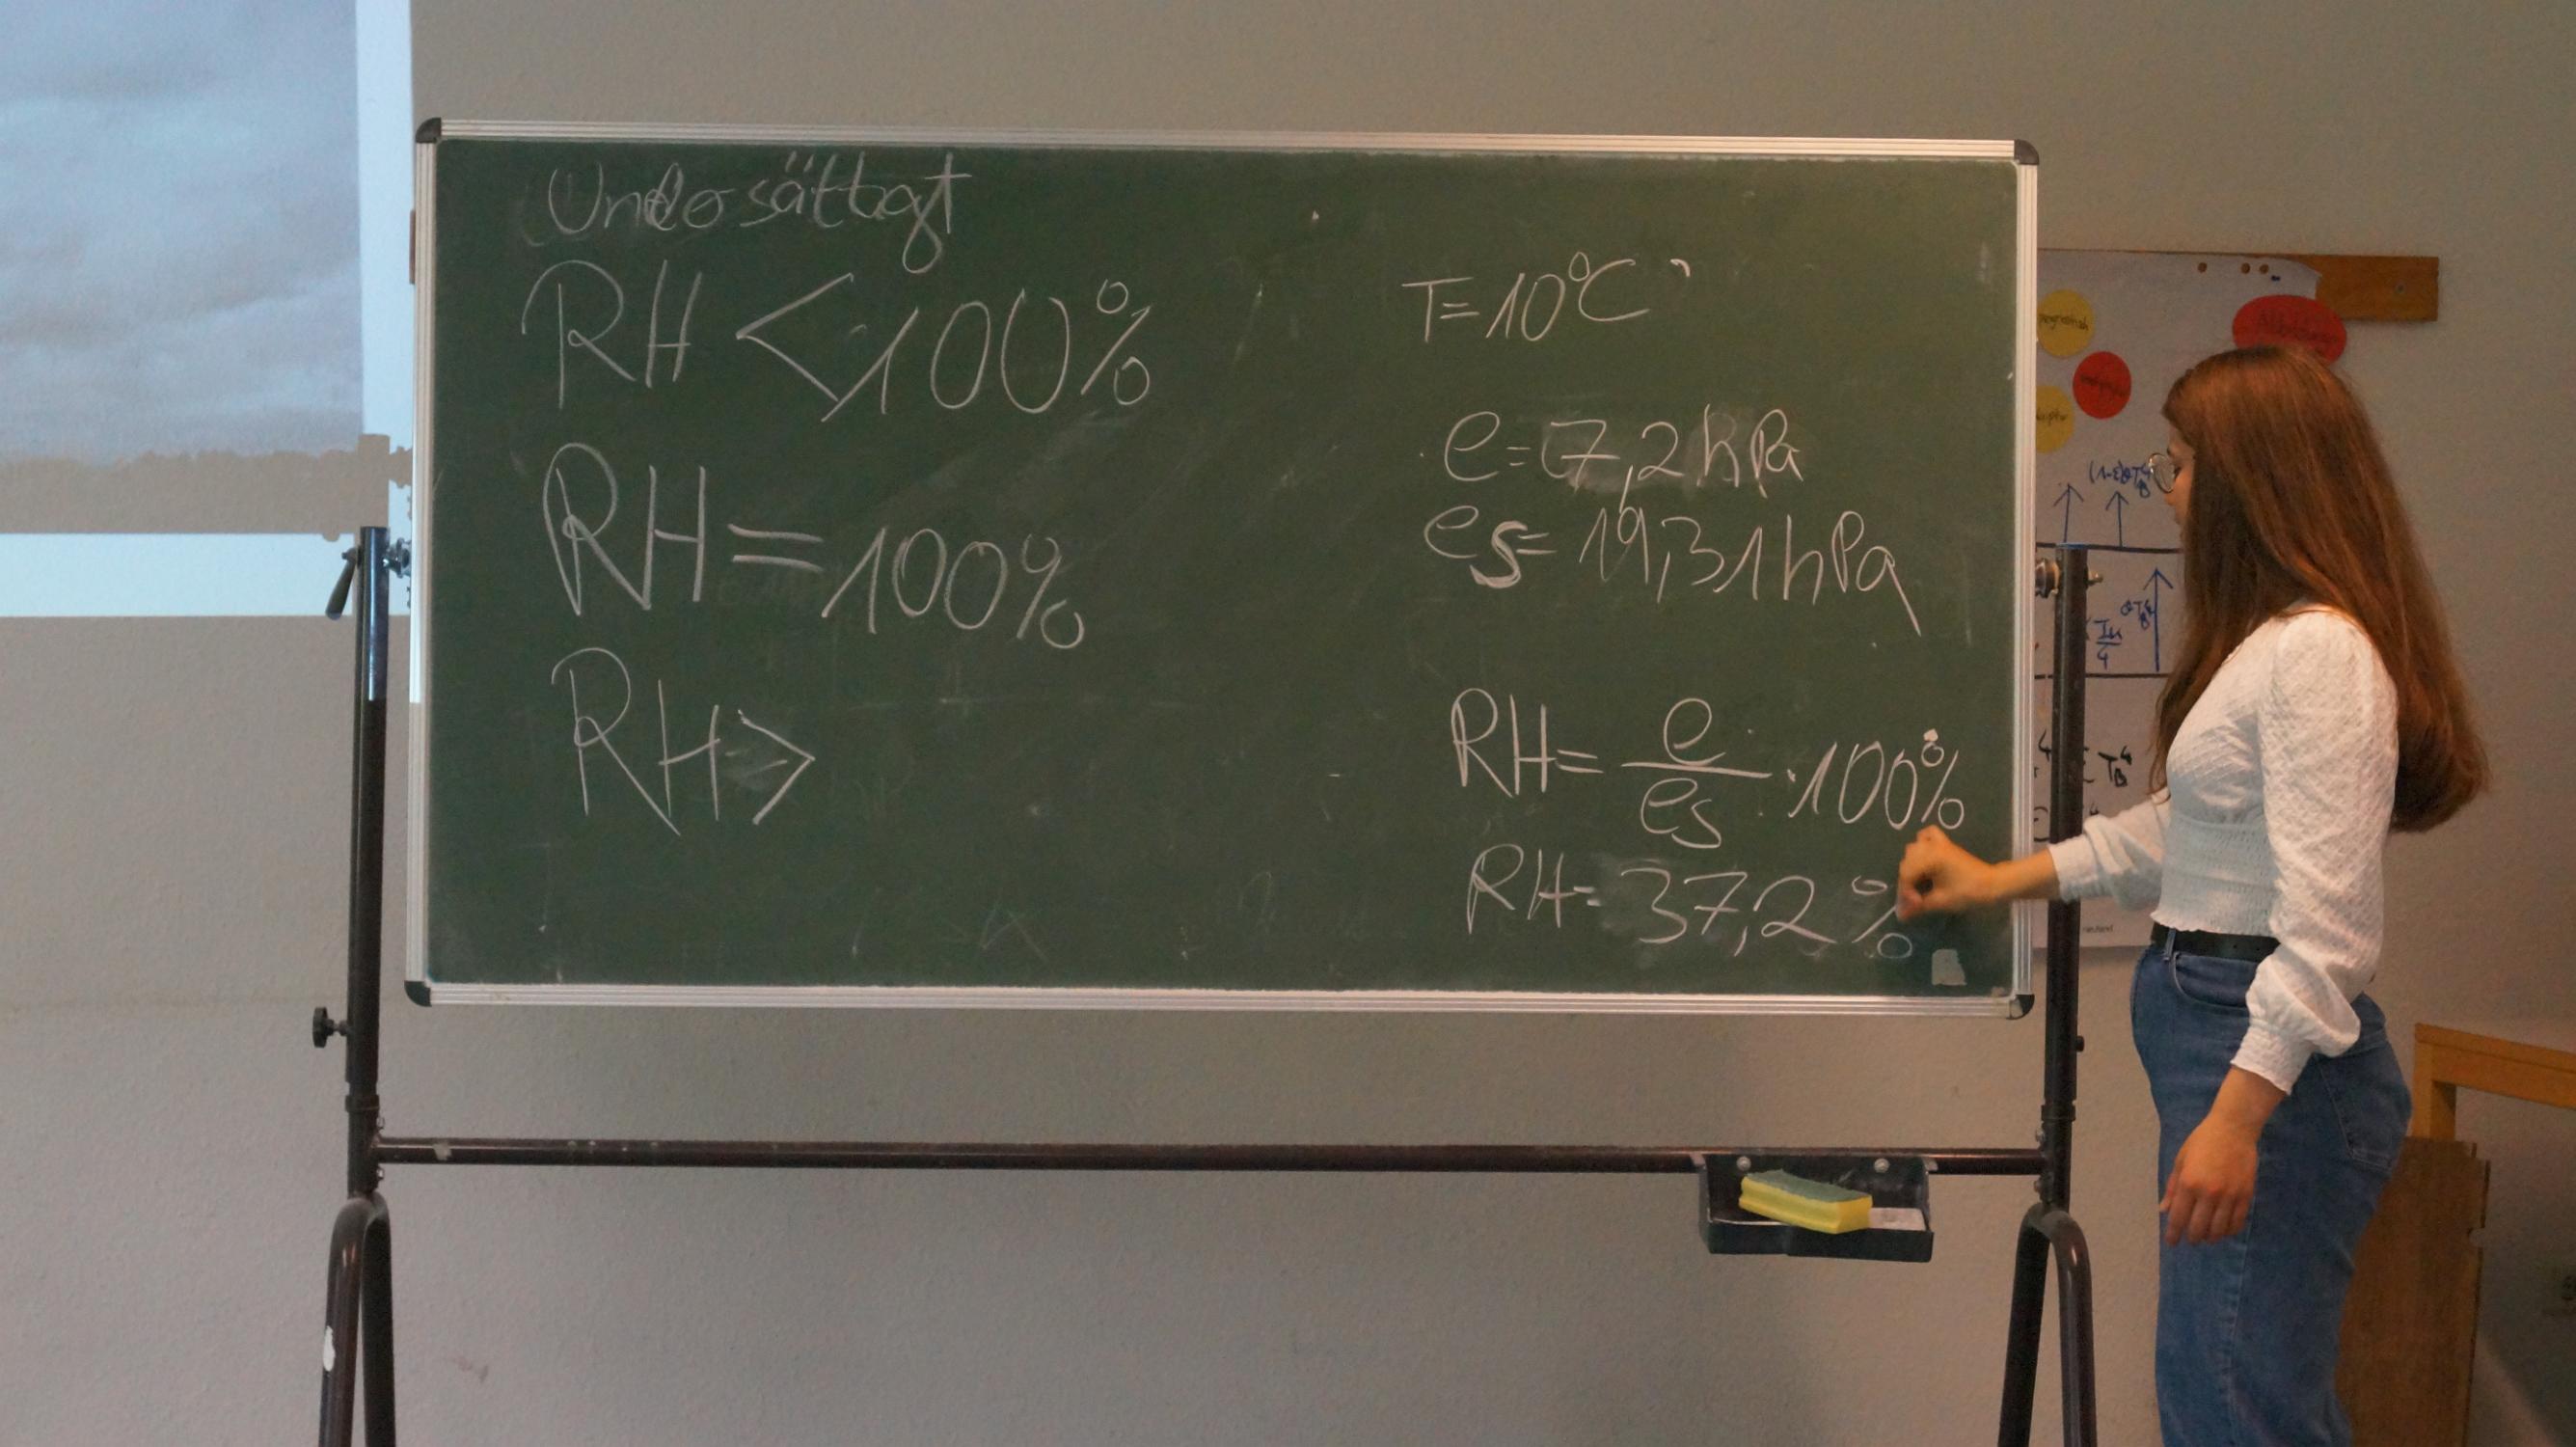 Undersättigt
RH < 100%
RH = 100%
RH >
T = 10°C
e = 7,2 hPa
es = 19,31 hPa
RH = e/es · 100%
RH = 37,2 %